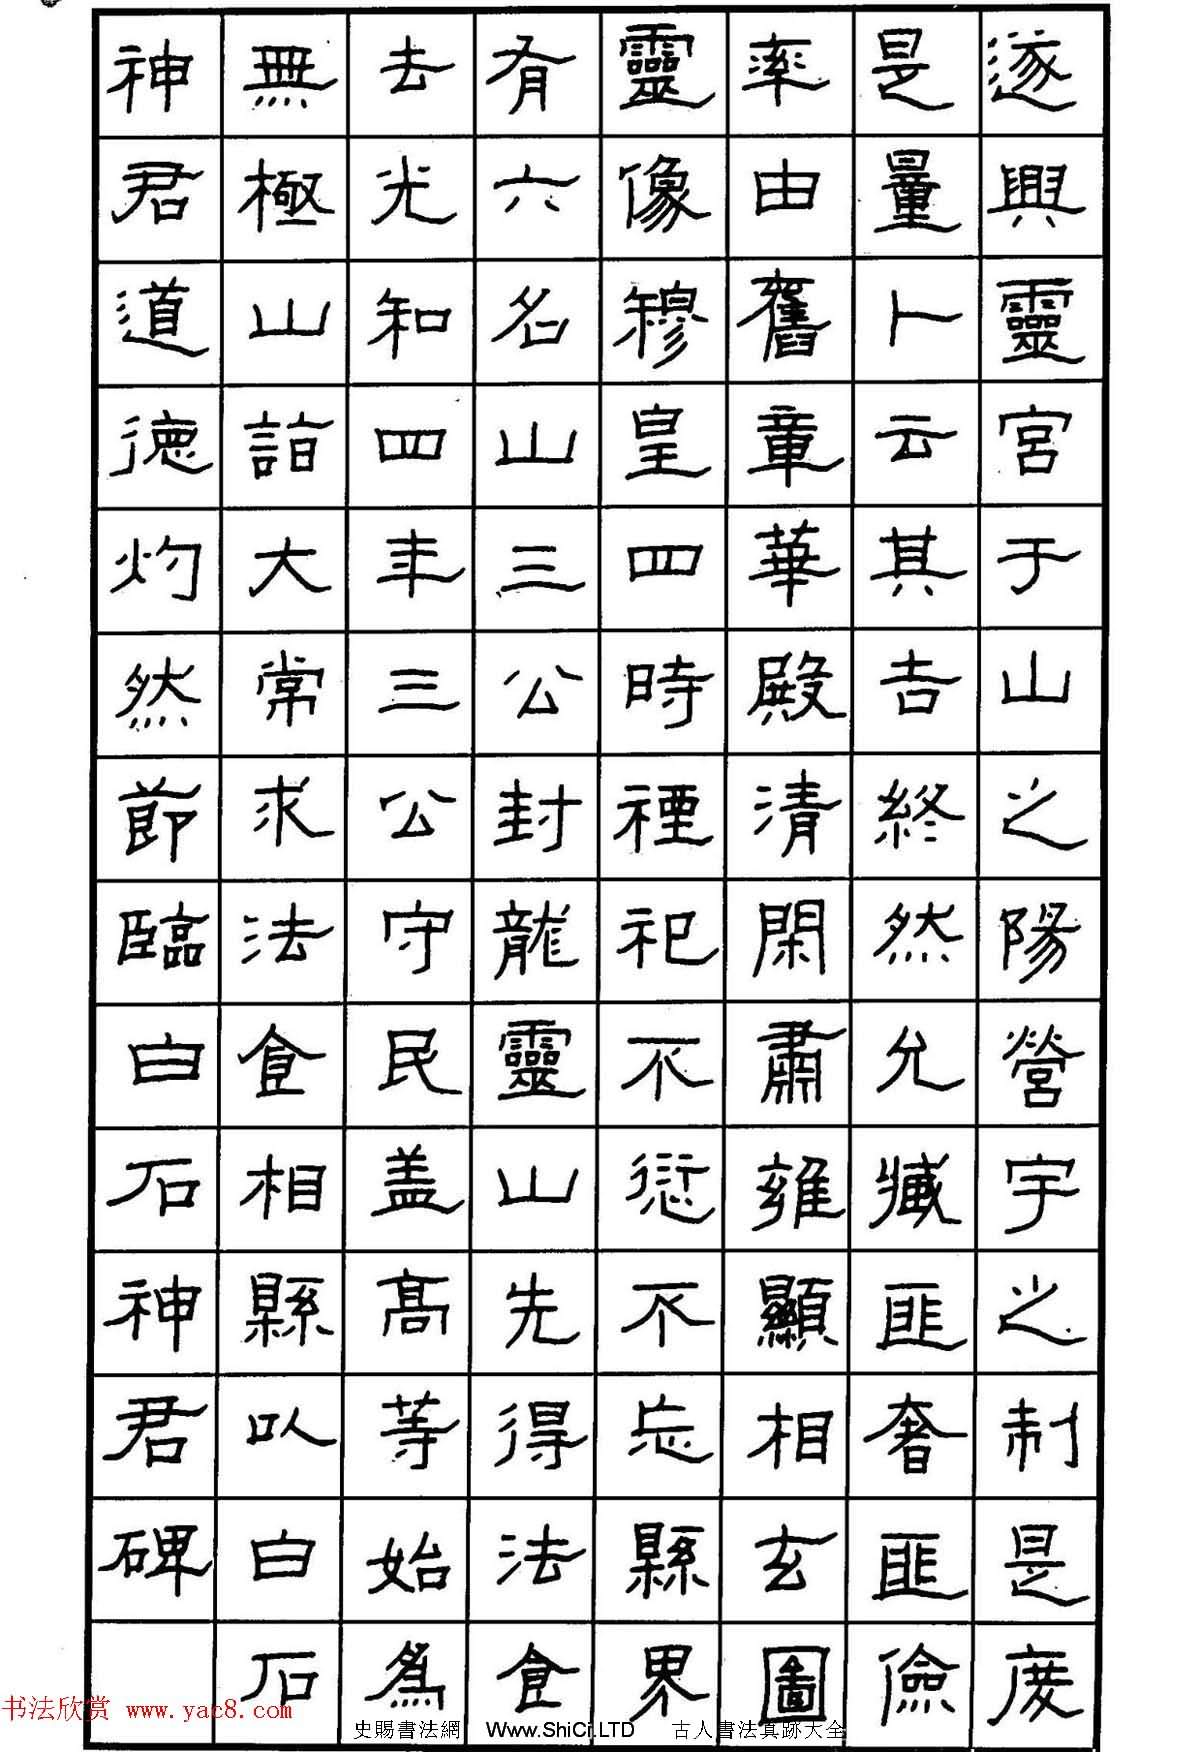 遂興靈宮于山之陽營宇之制是度
是量卜云其吉終然允臧匪奢匪儉
率由舊章華殿清閑肅雍顯相玄圖
靈像穆皇四時禋祀不愆不忘縣界
有六名山三公封龍靈山先得法食
去光和四年三公守民盖高等始為
無極山詣大常求法食相縣以白石
神君道德灼然節臨白石神君碑
书法欣赏 www.yac8.com
史賜書法網 Www.ShiCi.LTD 古人書法真跡大全